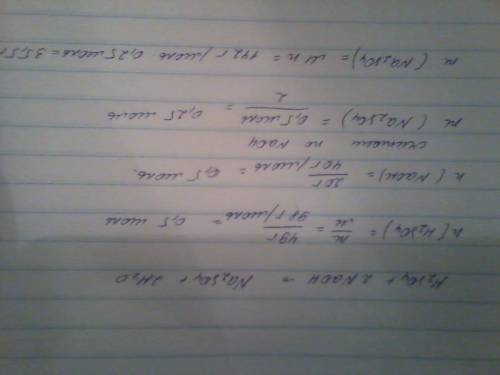 H₂SO₄ + 2 NaOH → Na₂SO₄ + 2H₂O
n(H₂SO₄) = m/M = 49г / 98 г/моль = 0,5 моль
n(NaOH) = 20г / 40 г/моль = 0,5 моль.
считаем по NaOH
n(Na₂SO₄) = 0,5 моль / 2 = 0,25 моль
m(Na₂SO₄) = M n = 142 г/моль · 0,25 моль = 35,5 г